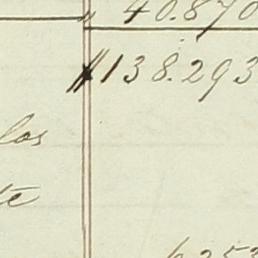 " 40.870
$138.293
los
te
6.253